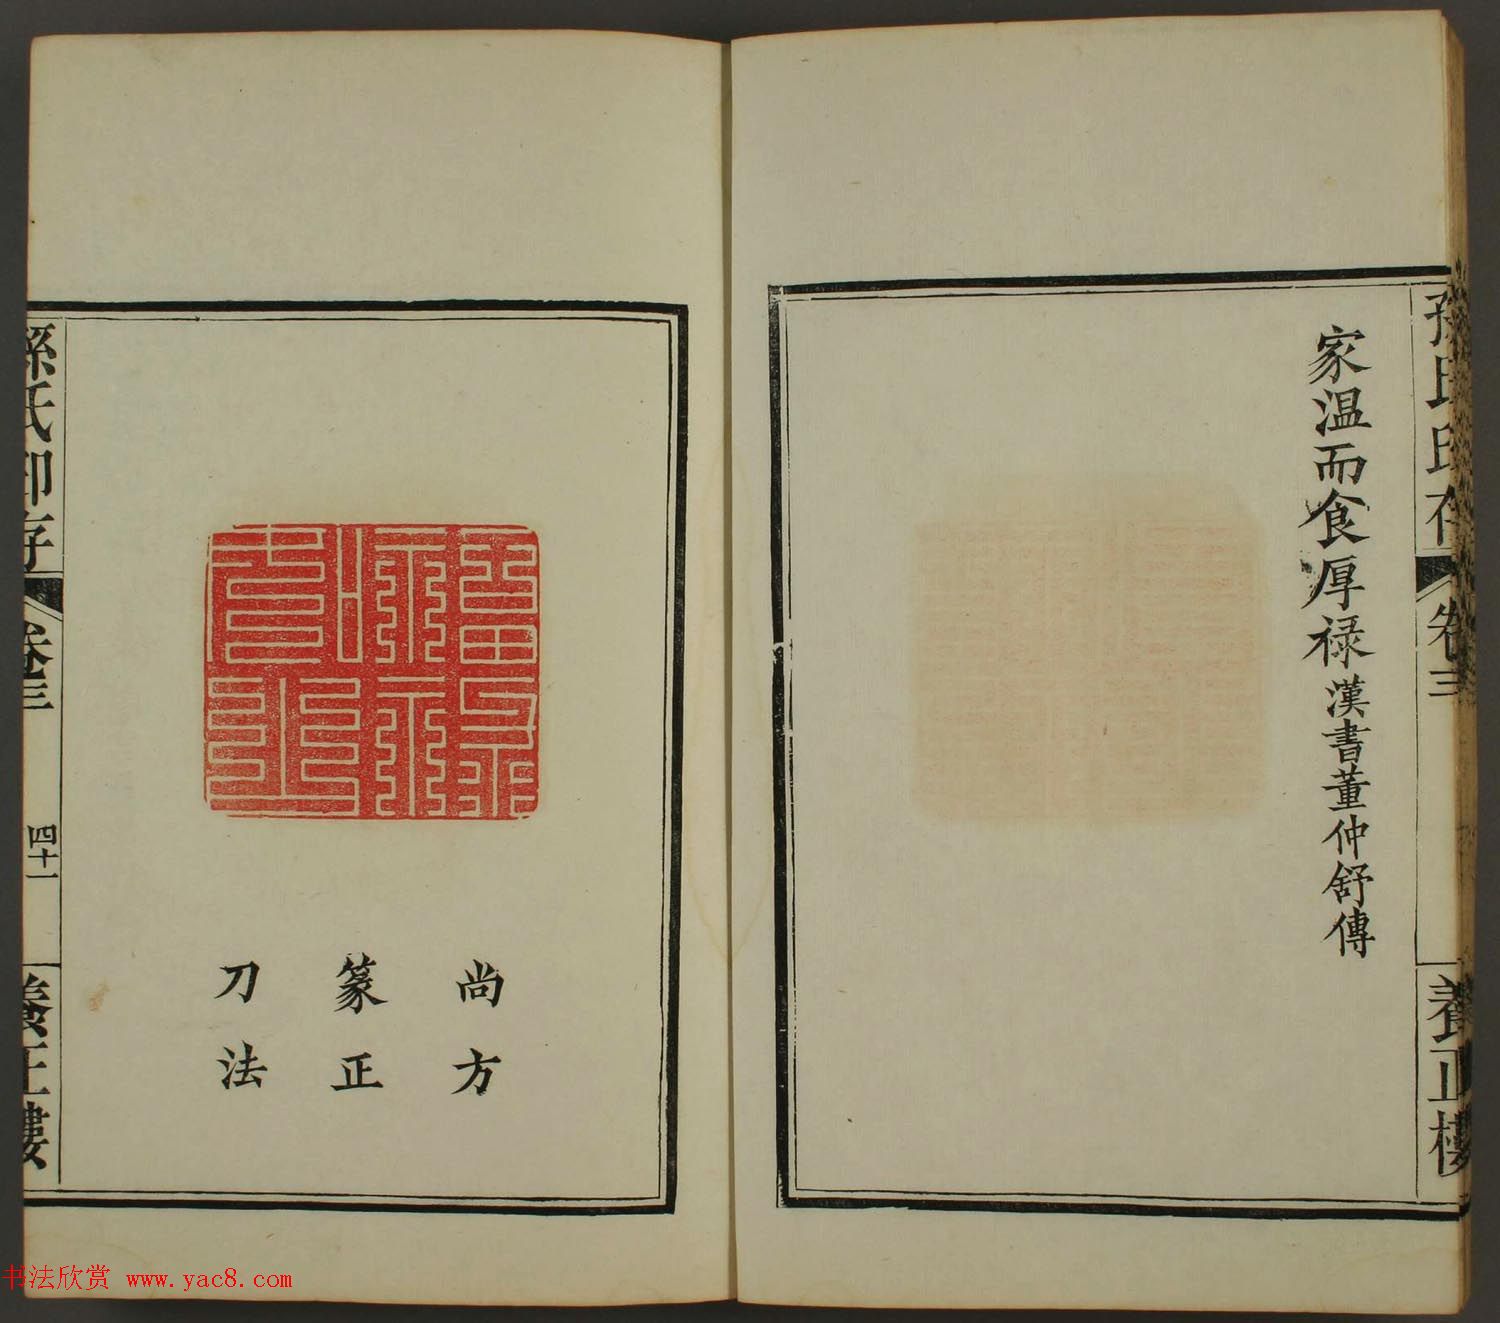 孫氏印存
卷三
養正樓
家温而食厚禄漢書董仲舒傳
尚方
篆正
刀法
孫氏印存
卷三
四十一
養正樓
书法欣赏 www.yac8.com